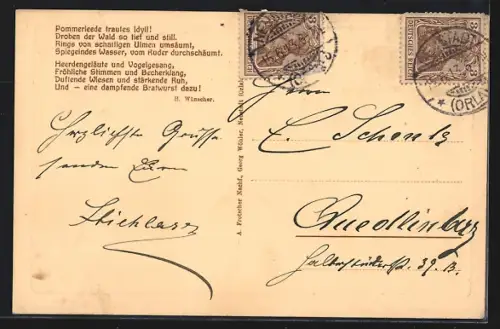 Pommerleede trautes Idyll!
Droben der Wald so tief und still.
Rings von schattigen Ulmen umsäumt,
Spiegelndes Wasser, vom Ruder durchschäumt.
Heerdengeläute und Vogelgesang,
Fröhliche Stimmen und Becherklang,
Duftende Wiesen und stärkende Ruh,
Und — eine dampfende Bratwurst dazu!
B. Wünscher.
Herzlichste Grüsse
senden Euch
A. Frotscher Nachf., Georg Wöhler, Neustadt (Orla)
Herrn
E. Schentz
Quedlinburg
Halberstädterstr. 39. B.
DEUTSCHES REICH
3
3
NEUSTADT
(ORLA)
(ORLA)